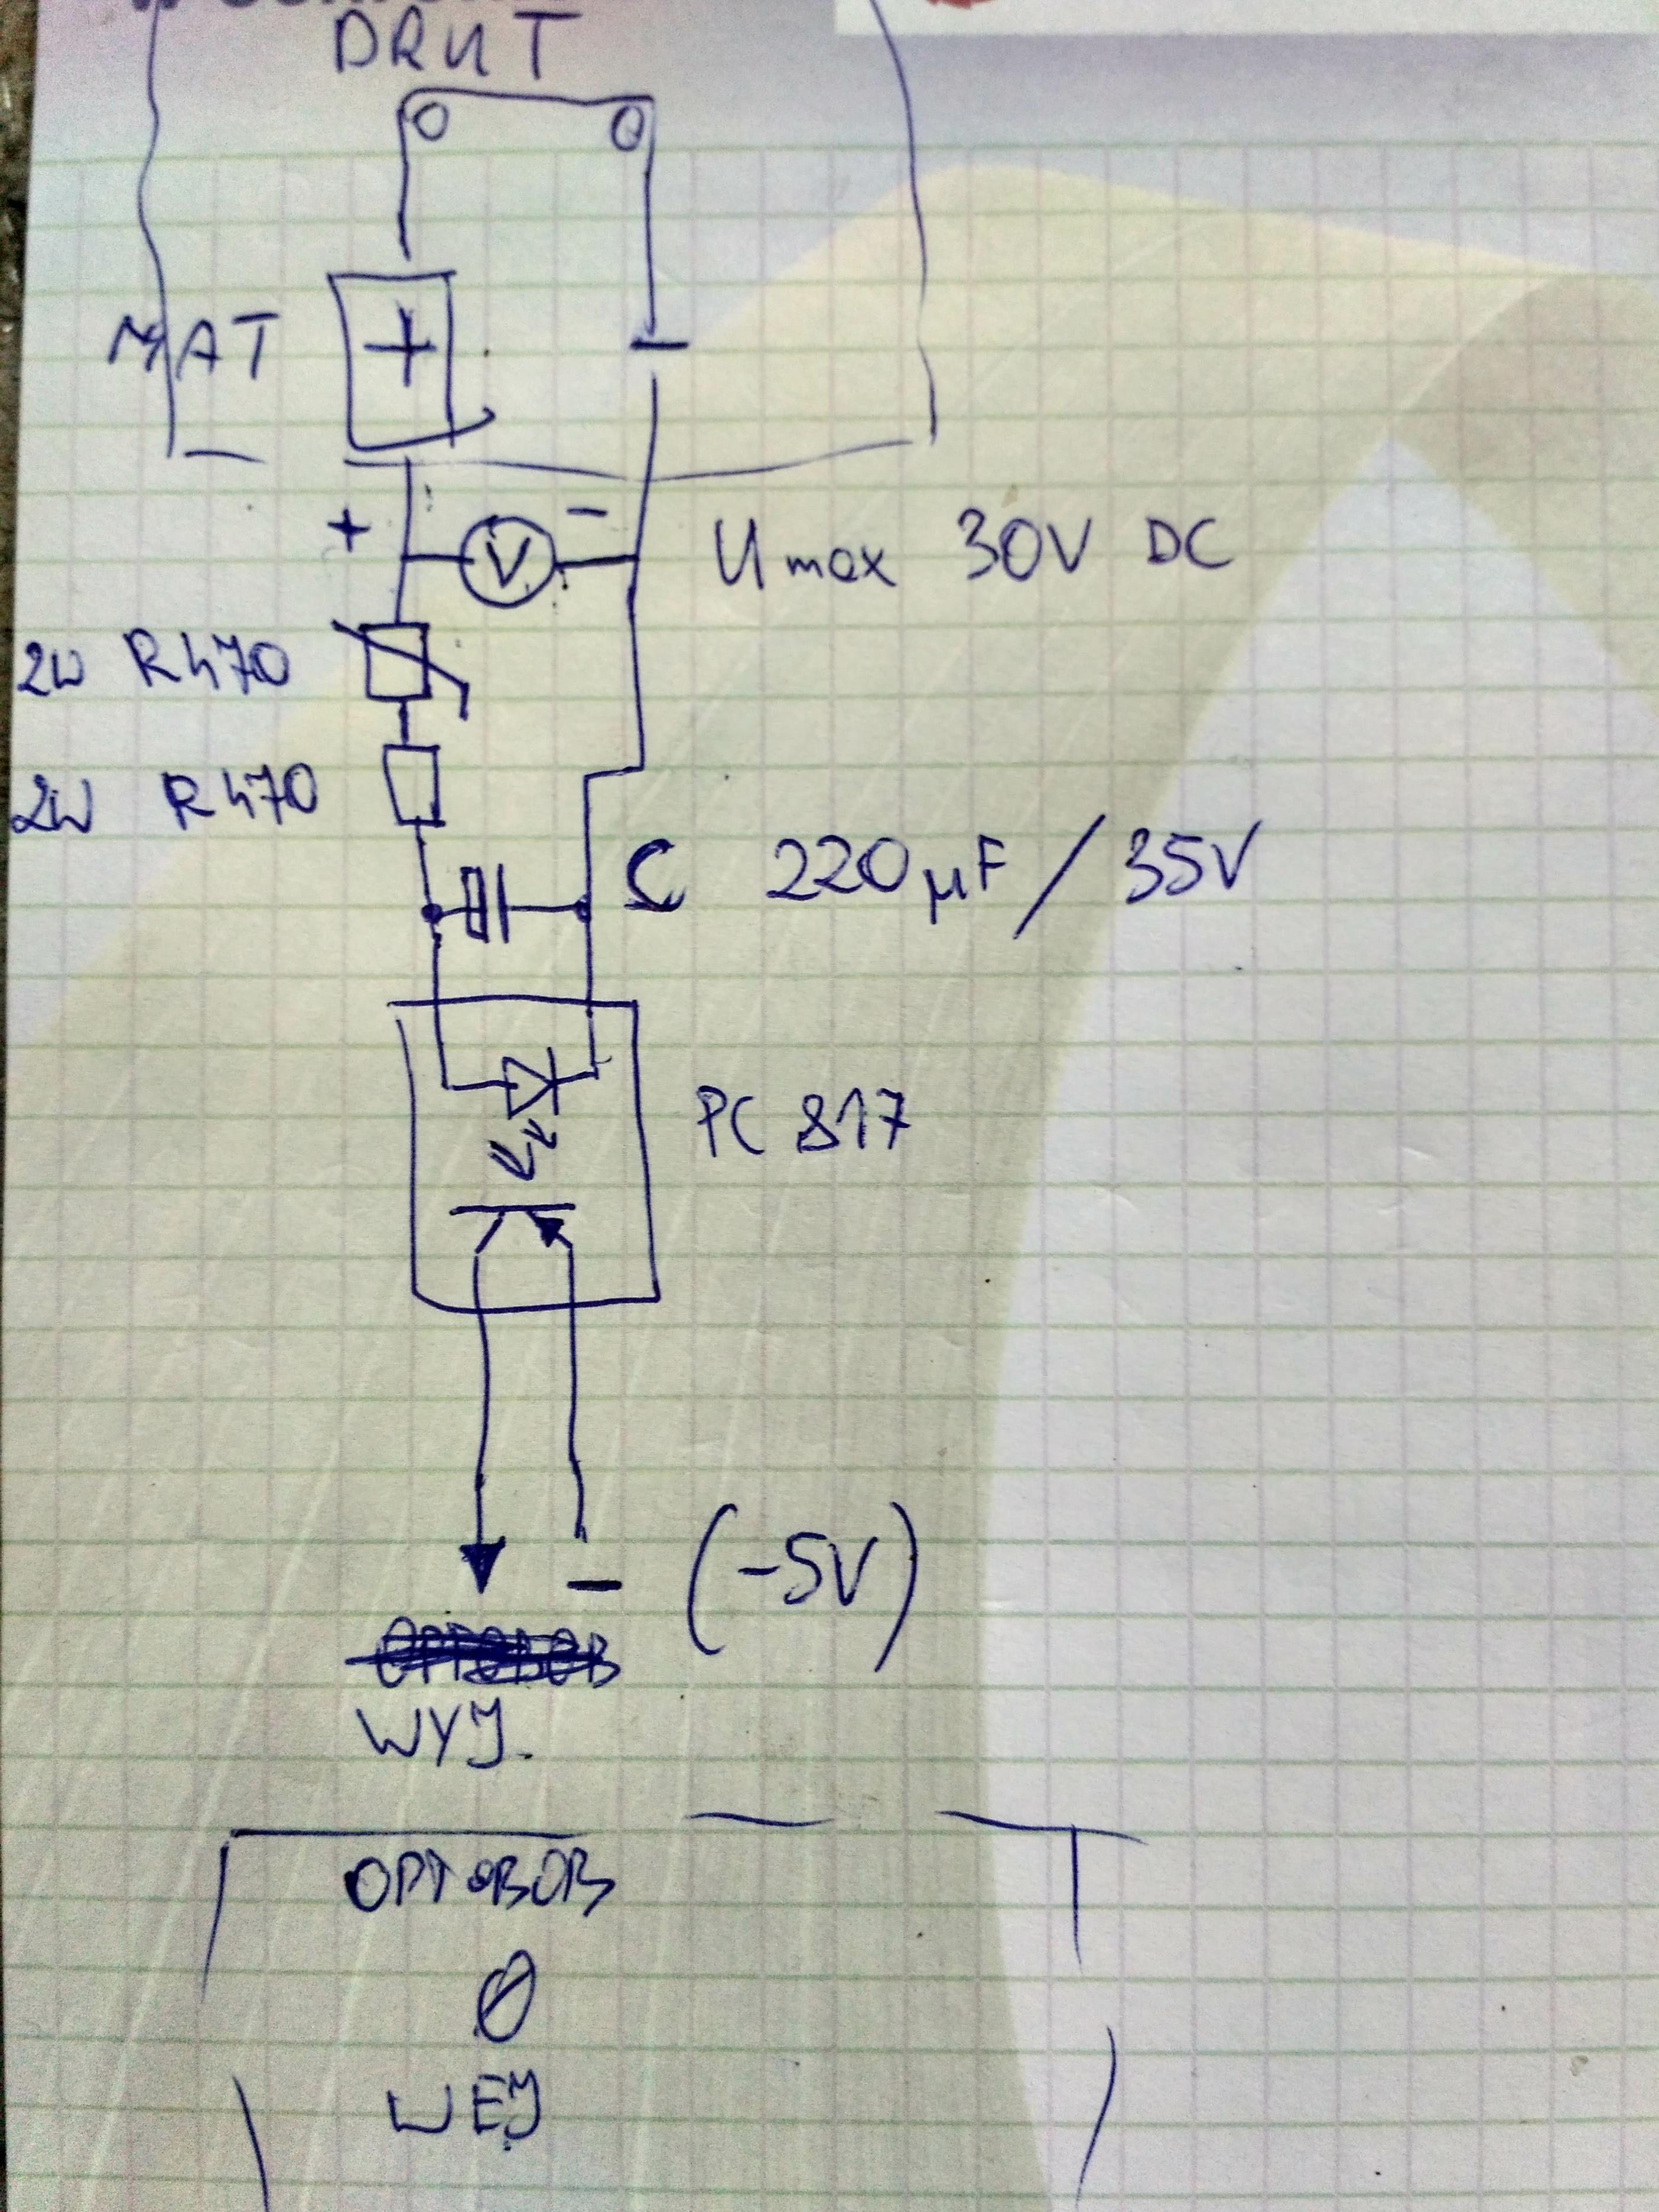 DRUT
MAT + -
+ V - Umax 30V DC
2W R470
2W R470
C 220µF/35V
PC 817
- (-5V)
WYJ.
OPTOBOB
0
WEJ